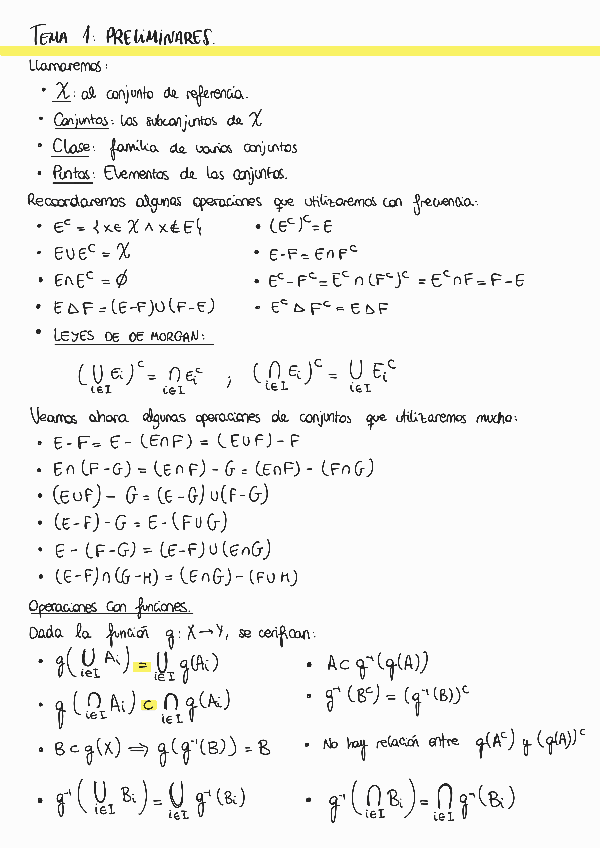 TEMA 1: PRELIMINARES.
Llamaremos:
• X: al conjunto de referencia.
• Conjuntos: los subconjuntos de X
• Clase: familia de varios conjuntos
• Puntos: Elementos de los conjuntos.
Recordaremos algunas operaciones que utilizaremos con frecuencia:
• Eᶜ = {x∈X ∧ x∉E} • (Eᶜ)ᶜ = E
• E∪Eᶜ = X • E-F = E∩Fᶜ
• E∩Eᶜ = ∅ • Eᶜ-Fᶜ = Eᶜ∩(Fᶜ)ᶜ = Eᶜ∩F = F-E
• E△F = (E-F)∪(F-E) • Eᶜ△Fᶜ = E△F
• LEYES DE DE MORGAN:
(⋃_{i∈I} Eᵢ)ᶜ = ⋂_{i∈I} Eᵢᶜ ; (⋂_{i∈I} Eᵢ)ᶜ = ⋃_{i∈I} Eᵢᶜ
Veamos ahora algunas operaciones de conjuntos que utilizaremos mucho:
• E-F = E-(E∩F) = (E∪F)-F
• E∩(F-G) = (E∩F)-G = (E∩F)-(F∩G)
• (E∪F)-G = (E-G)∪(F-G)
• (E-F)-G = E-(F∪G)
• E-(F-G) = (E-F)∪(E∩G)
• (E-F)∩(G-H) = (E∩G)-(F∪H)
Operaciones con funciones.
Dada la función g: X→Y, se verifican:
• g(⋃_{i∈I} Aᵢ) = ⋃_{i∈I} g(Aᵢ) • A⊂g⁻¹(g(A))
• g(⋂_{i∈I} Aᵢ) ⊂ ⋂_{i∈I} g(Aᵢ) • g⁻¹(Bᶜ) = (g⁻¹(B))ᶜ
• B⊂g(X) ⟹ g(g⁻¹(B)) = B • No hay relación entre g(Aᶜ) y (g(A))ᶜ
• g⁻¹(⋃_{i∈I} Bᵢ) = ⋃_{i∈I} g⁻¹(Bᵢ) • g⁻¹(⋂_{i∈I} Bᵢ) = ⋂_{i∈I} g⁻¹(Bᵢ)